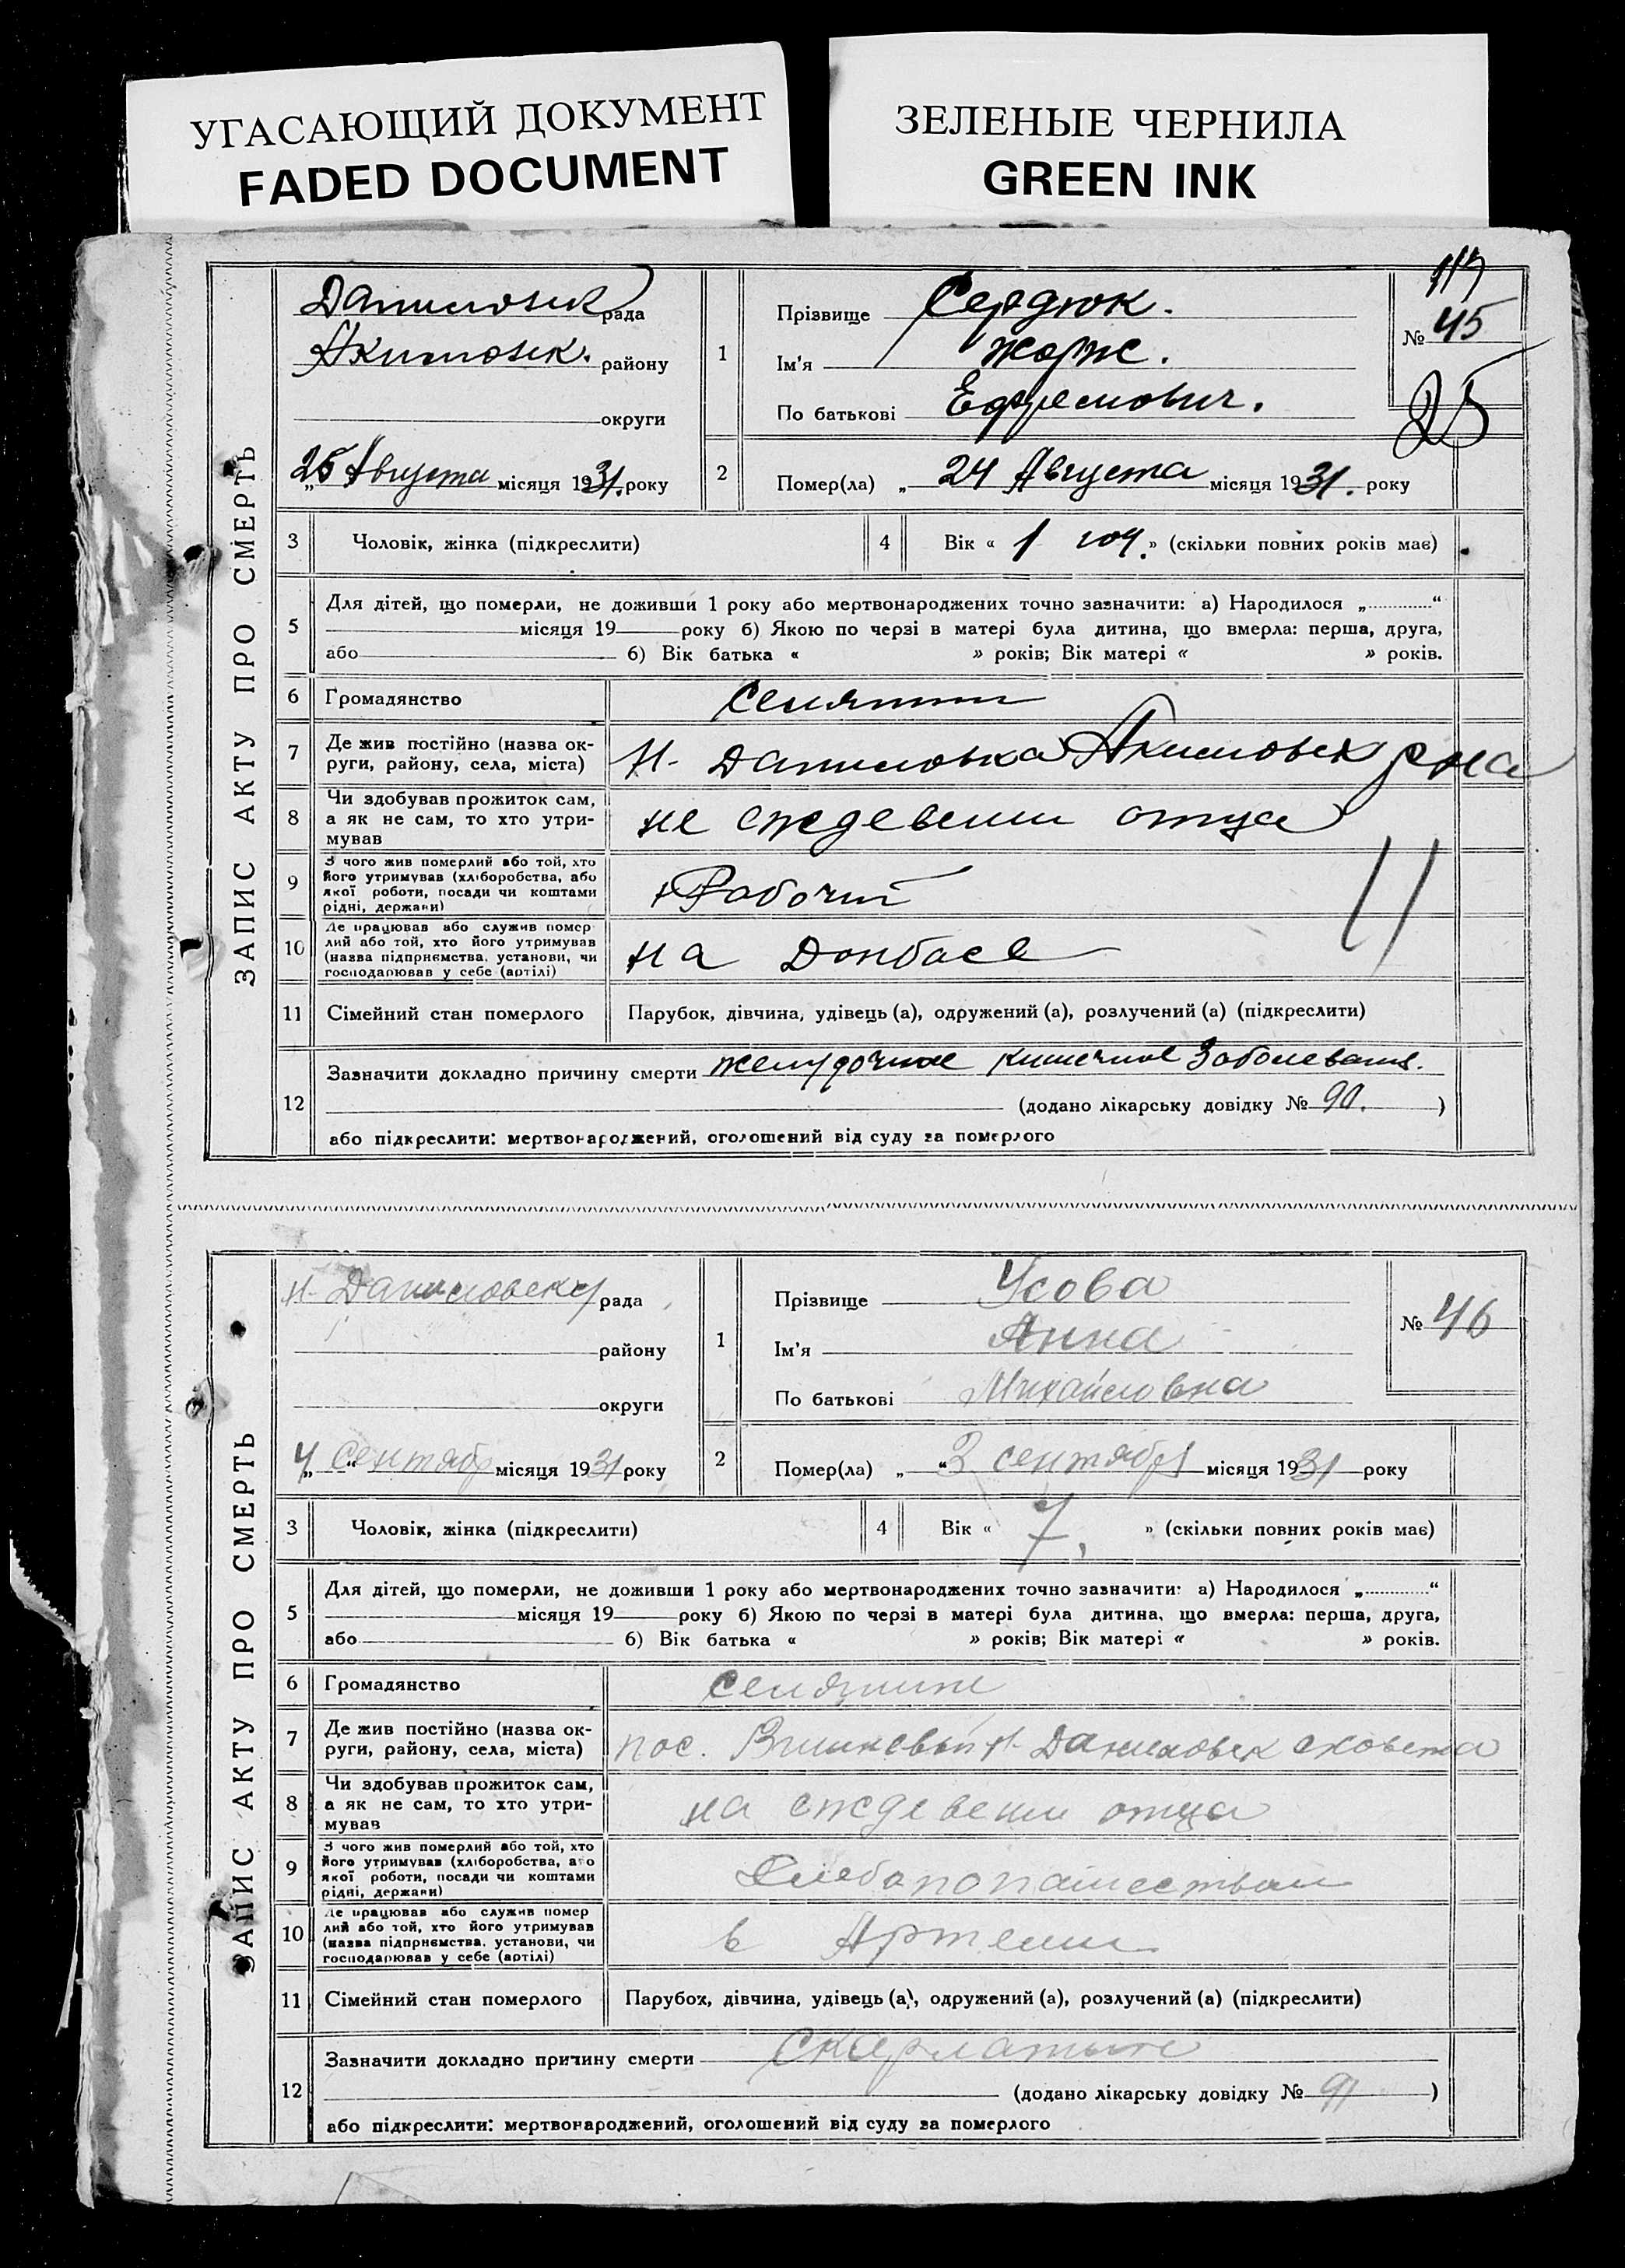 УГАСАЮЩИЙ ДОКУМЕНТ
FADED DOCUMENT
ЗЕЛЕНЫЕ ЧЕРНИЛА
GREEN INK
ЗАПИС АКТУ ПРО СМЕРТЬ
Даниловск рада
Акимовск. району
округи
25 Августа місяця 1931. року
1
Прізвище Сердюк.
Ім'я Жорж.
По батькові Ефремович.
117
№ 45
25
2
Помер(ла) „ 24 Августа місяця 1931. року
3
Чоловік, жінка (підкреслити)
4
Вік « 1 год. » (скільки повних років має)
5
Для дітей, що померли, не доживши 1 року або мертвонароджених точно зазначити: а) Народилося „ “
місяця 19 року б) Якою по черзі в матері була дитина, що вмерла: перша, друга,
або б) Вік батька « » років; Вік матері « » років.
6
Громадянство
селянин
7
Де жив постійно (назва ок-
руги, району, села, міста)
Н- Даниловка Акимовск р-на
8
Чи здобував прожиток сам,
а як не сам, то хто утри-
мував
не еждевеши отца
9
З чого жив померлий або той, хто
його утримував (хліборобства, або
якої роботи, посади чи коштами
рідні, держави)
Рабочий
10
Де працював або служив помер
лий або той, хто його утримував
(назва підприємства, установи, чи
господарював у себе (артілі)
на Донбасе
11
Сімейний стан померлого
Парубок, дівчина, удівець (а), одружений (а), розлучений (а) (підкреслити)
12
Зазначити докладно причину смерти желудочное кишечное Заболевания.
(додано лікарську довідку № 90. )
або підкреслити: мертвонароджений, оголошений від суду за померлого
ЗАПИС АКТУ ПРО СМЕРТЬ
Н- Даниловску рада
району
округи
4 „ сентябр місяця 1931 року
1
Прізвище Усова
Ім'я Анна
По батькові Михайловна
№ 46
2
Помер(ла) „ “ 3 сентября місяця 1931 року
3
Чоловік, жінка (підкреслити)
4
Вік « 7, » (скільки повних років має)
5
Для дітей, що померли, не доживши 1 року або мертвонароджених точно зазначити: а) Народилося „ “
місяця 19 року б) Якою по черзі в матері була дитина, що вмерла: перша, друга,
або б) Вік батька « » років; Вік матері « » років.
6
Громадянство
селянин
7
Де жив постійно (назва ок-
руги, району, села, міста)
пос. Вишневый Н- Даниловск
8
Чи здобував прожиток сам,
а як не сам, то хто утри-
мував
на еждевеши отца
9
З чого жив померлий або той, хто
його утримував (хліборобства, або
якої роботи, посади чи коштами
рідні, держави)
Хлебопопашеством
10
Де працював або служив помер
лий або той, хто його утримував
(назва підприємства, установи, чи
господарював у себе (артілі)
в Артели
11
Сімейний стан померлого
Парубок, дівчина, удівець (а), одружений (а), розлучений (а) (підкреслити)
12
Зазначити докладно причину смерти Скарлатине
(додано лікарську довідку № 91 )
або підкреслити: мертвонароджений, оголошений від суду за померлого